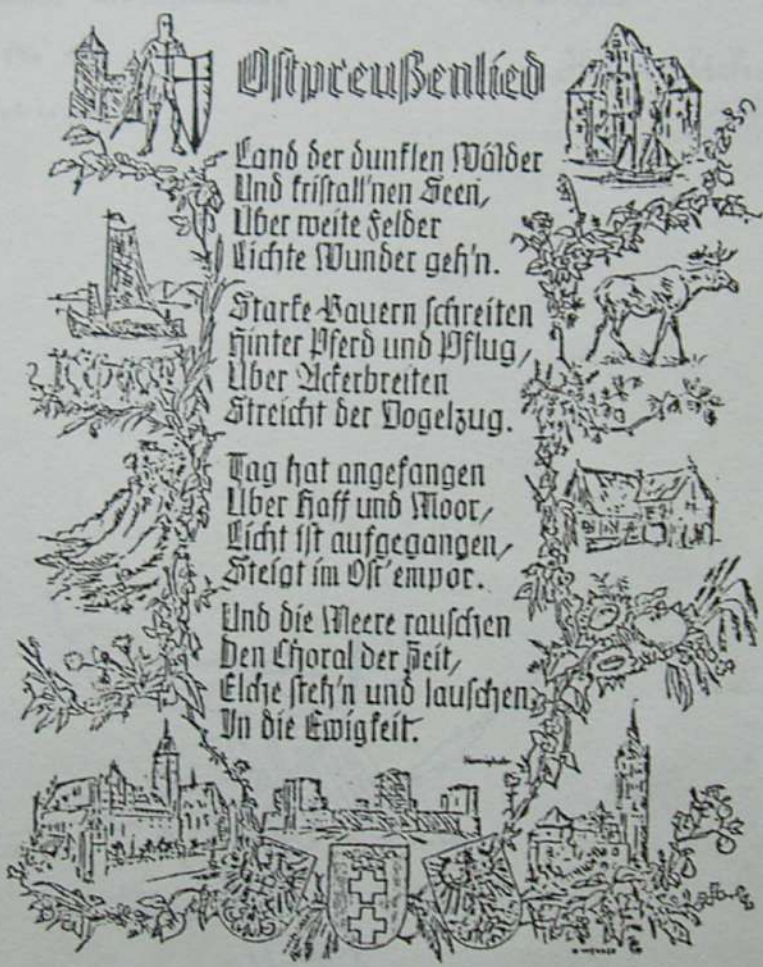 Ostpreußenlied
Land der dunklen Wälder
Und kristall'nen Seen,
Über weite Felder
Lichte Wunder geh'n.
Starke Bauern schreiten
Hinter Pferd und Pflug,
Über Ackerbreiten
Streicht der Vogelzug.
Tag hat angefangen
Über Haff und Moor,
Licht ist aufgegangen,
Steigt im Ost' empor.
Und die Meere rauschen
Den Choral der Zeit,
Elche steh'n und lauschen
In die Ewigkeit.